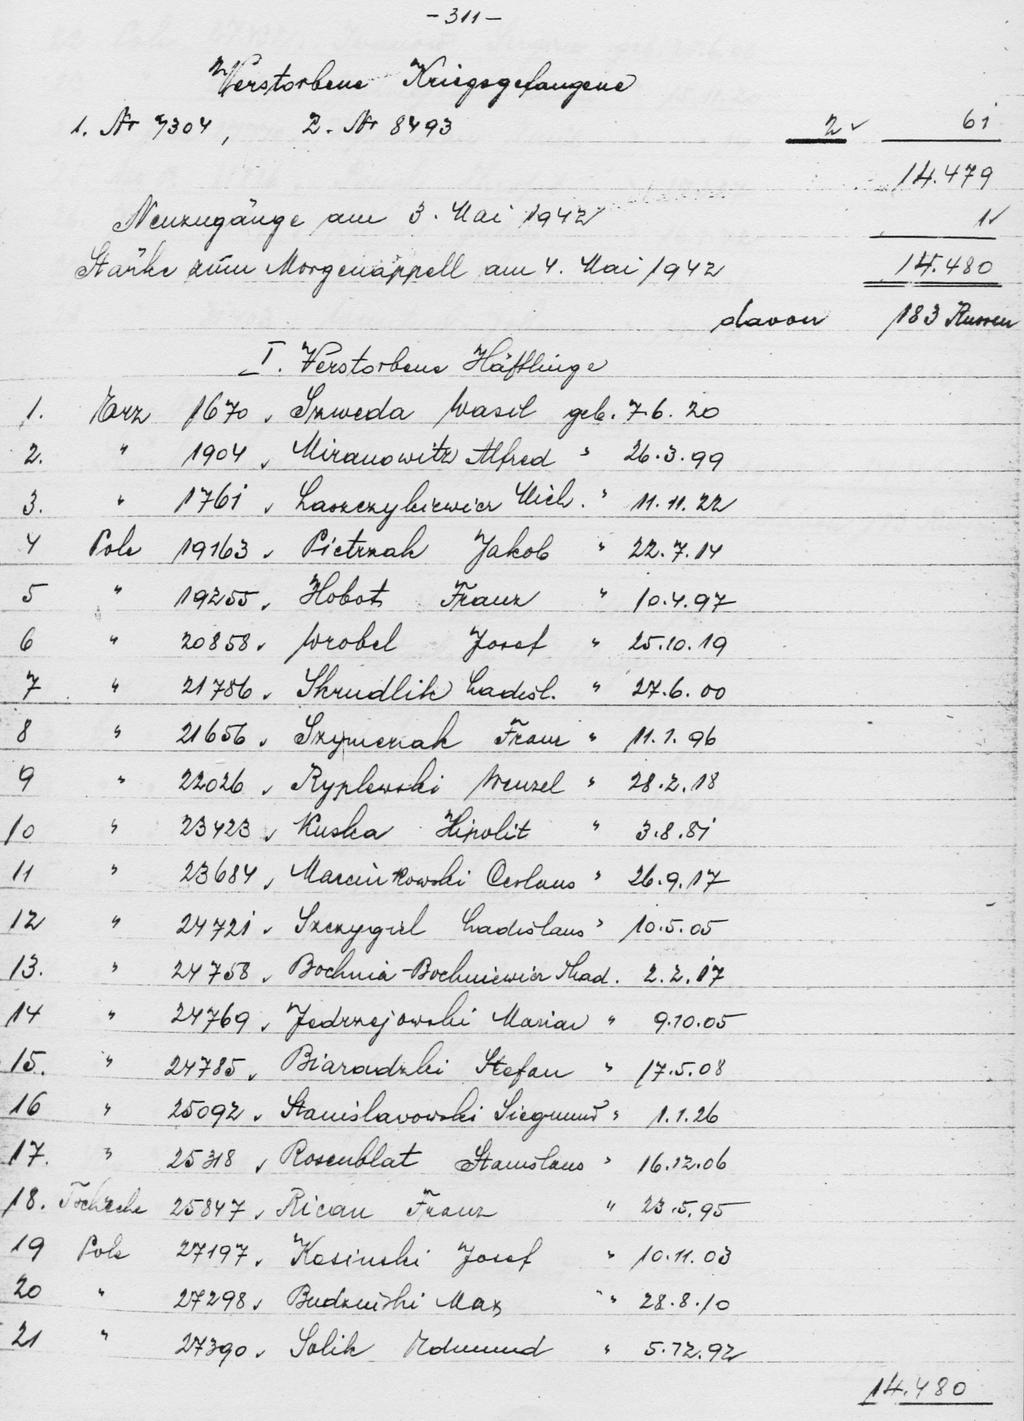 - 311 -
Verstorbene Kriegsgefangene
1. Nr 7304, 2. Nr 8493 2 61
14.479
Neuzugänge am 3. Mai 1942 1
Stärke zum Morgenappell am 4. Mai 1942 14.480
davon 183 Russen
I. Verstorbene Häftlinge
1. 1670, Szweda Wasil geb. 7.6.20
2. " 1904, Miranowitz Alfred " 26.3.99
3. " 1761, Laszczykiewicz Mich. " 11.11.22
4 Pole 19163, Pietrzak Jakob " 22.7.14
5 " 19255, Hobot Franz " 10.4.97
6 " 20858, Wrobel Josef " 25.10.19
7 " 21786, Skrudlik Ladisl. " 27.6.00
8 " 21656, Szymczak Franz " 11.1.96
9 " 22026, Ryplewski Wenzel " 28.2.18
10 " 23423, Kuska Hipolit " 3.8.81
11 " 23684, Marcinkowski Ceslaus " 26.9.17
12 " 24721, Szczygiel Ladislaus " 10.5.05
13. " 24758, Bochnia-Bochniewicz Thad. 2.2.17
14 " 24769, Jedrzejowski Marian " 9.10.05
15. " 24785, Stefan " 17.5.08
16 " 25092, Stanislavowski Siegmund " 1.1.26
17. " 25318, Rosenblat Stanislaus " 16.12.06
18. Tscheche 25847, Rican Franz " 23.5.95
19 Pole 27197, Kosinski Josef " 10.11.03
20 " 27298, Budzinski Max " 28.8.10
21 " 27390, Solik Edmund " 5.12.92
14.480